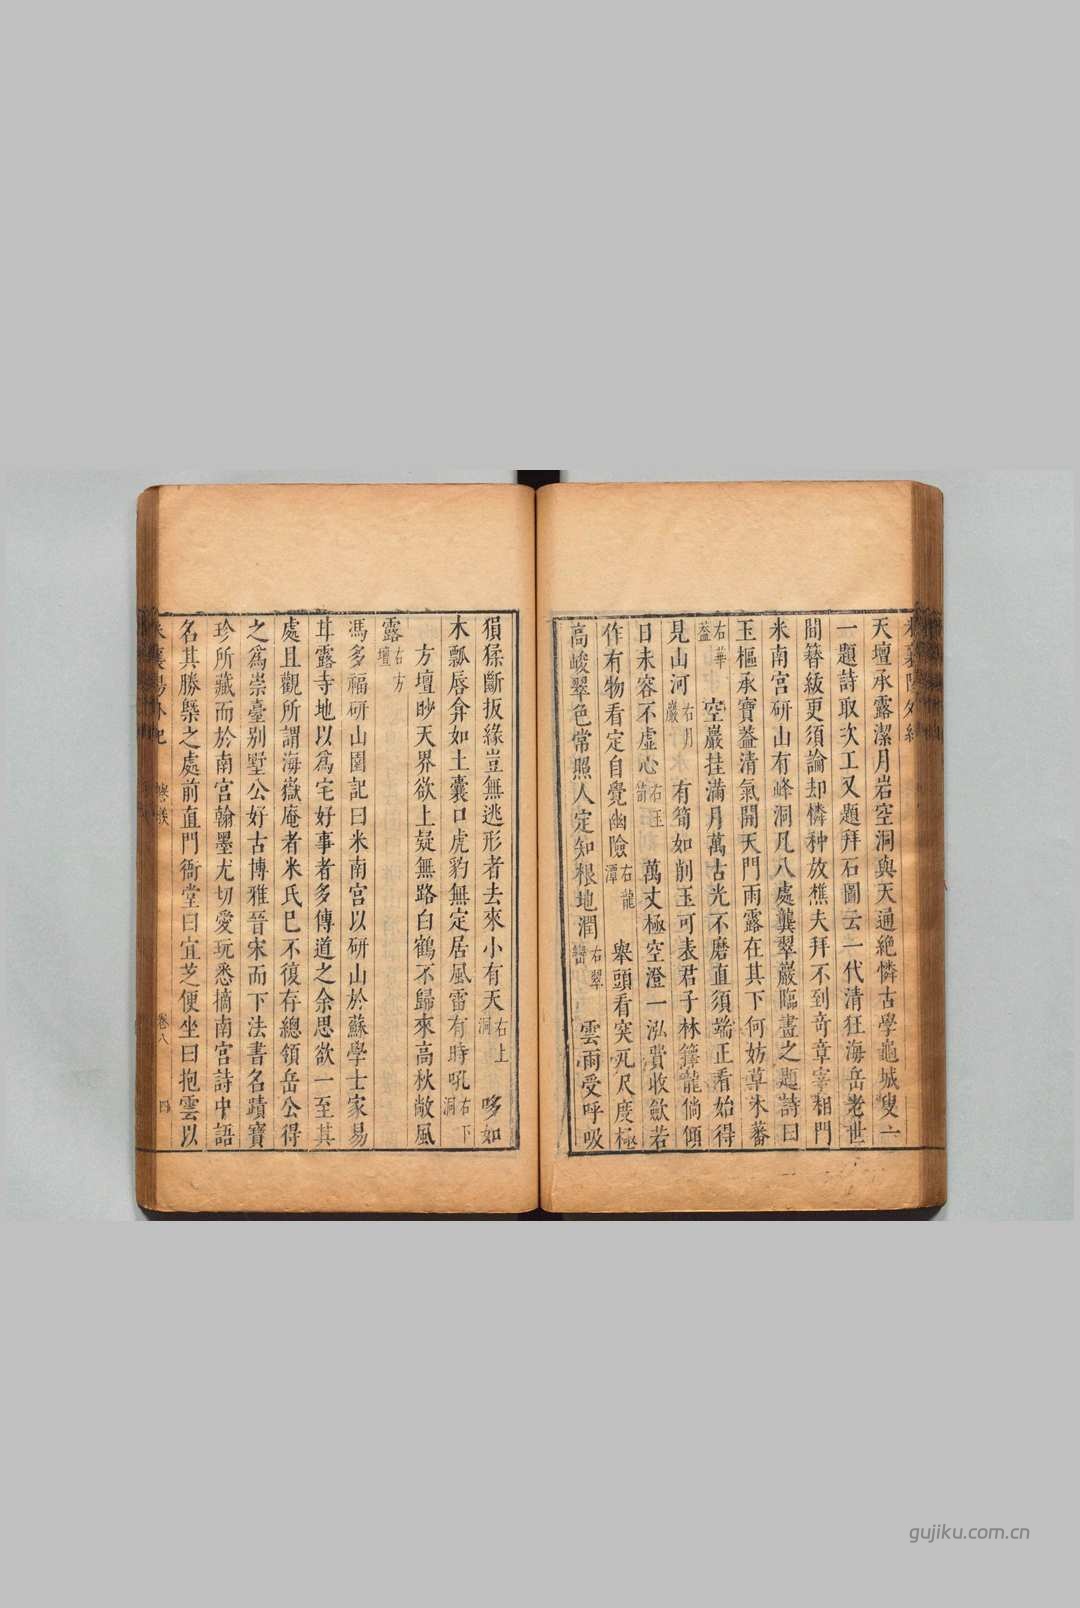 天壇承露潔月岩空洞與天通絶憐古學龜城叟一
一題詩取次工又題拜石圖云一代清狂海岳老世
間簪紱更須論却憐种放樵夫拜不到竒章宰相門
米南宫研山有峰洞凡八處龔翠巖臨畫之題詩曰
玉樞承寶葢清氣開天門雨露在其下何妨草木蕃
右華葢 空巖挂滿月萬古光不磨直須端正看始得
見山河 右月巖 有筍如削玉可表君子林籜龍倘傾
日未容不虚心 右玉筍 萬丈極空澄一泓費收歛若
作有物看定自覺幽險 右龍潭 舉頭看突兀尺度極
高峻翠色常照人定知根地潤 右翠巒 雲雨受呼吸
猨猱斷扳緣豈無逃形者去來小有天 右上洞 哆如
木瓢唇弇如土囊口虎豹無定居風雷有時吼 右下洞
方壇眇天界欲上疑無路白鶴不歸來高秋敞風
露 右方壇
馮多福研山園記曰米南宫以研山於蘇學士家易
甘露寺地以爲宅好事者多傳道之余思欲一至其
處且觀所謂海嶽庵者米氏已不復存總領岳公得
之爲崇臺别墅公好古博雅晉宋而下法書名蹟寶
珍所藏而於南宫翰墨尤切愛玩悉摘南宫詩中語
名其勝槩之處前直門衙堂曰宜芝便坐曰抱雲以
米襄陽外紀 卷八 四